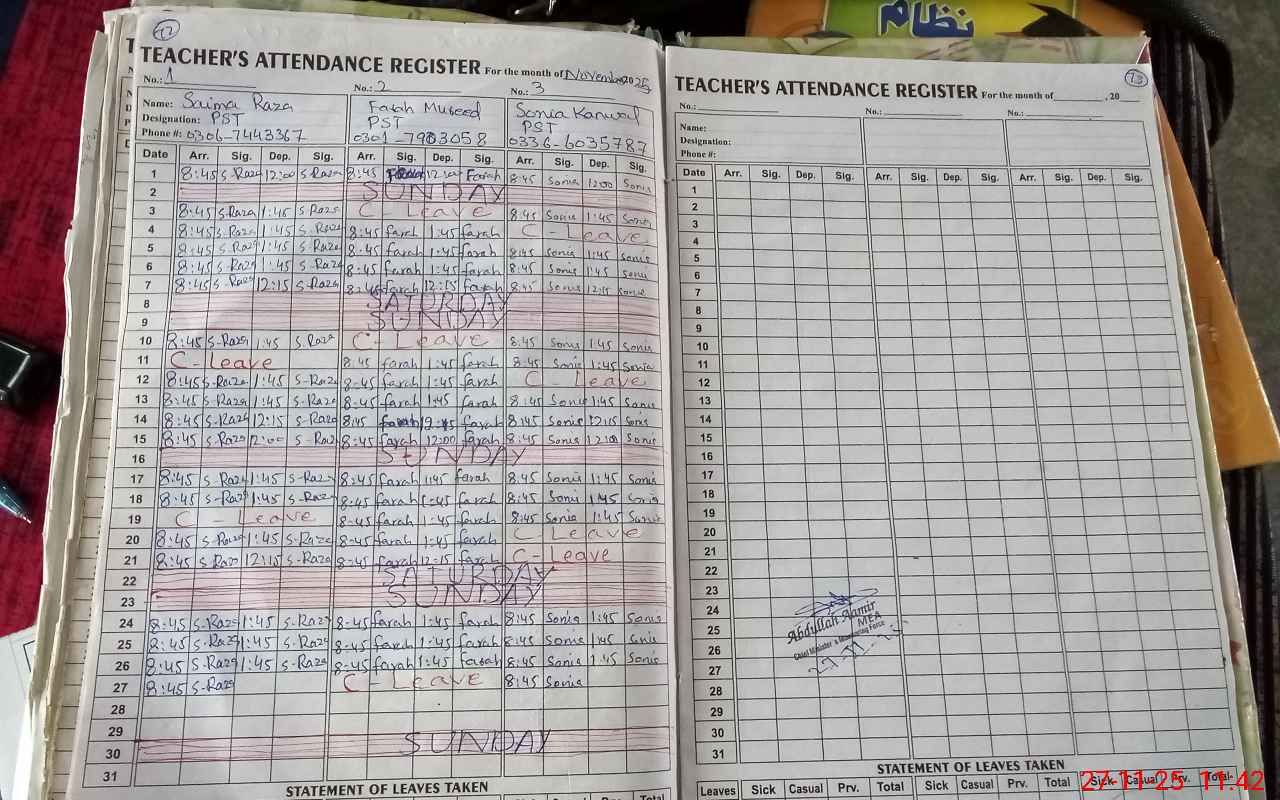 نظام
72
TEACHER'S ATTENDANCE REGISTER For the month of November 2025
No.: 1 No.: 2 No.: 3
Name: Saima Raza Farah Mubeed Sonia Kanwal
Designation: PST PST PST
Phone #: 0306-7443367 0301-7903058 0336-6035787
Date Arr. Sig. Dep. Sig. Arr. Sig. Dep. Sig. Arr. Sig. Dep. Sig.
1 8:45 S-Raza 12:00 S-Raza 8:45 Farah 12:00 Farah 8:45 Sonia 12:00 Sonia
2 SUNDAY
3 8:45 S-Raza 1:45 S-Raza C-Leave 8:45 Sonia 1:45 Sonia
4 8:45 S-Raza 1:45 S-Raza 8:45 farah 1:45 farah C-Leave
5 8:45 S-Raza 1:45 S-Raza 8:45 farah 1:45 farah 8:45 Sonia 1:45 Sonia
6 8:45 S-Raza 1:45 S-Raza 8:45 farah 1:45 farah 8:45 Sonia 1:45 Sonia
7 8:45 S-Raza 12:15 S-Raza 8:45 farah 12:15 farah 8:45 Sonia 12:15 Sonia
8 SATURDAY
9 SUNDAY
10 8:45 S-Raza 1:45 S-Raza C-Leave 8:45 Sonia 1:45 Sonia
11 C-Leave 8:45 farah 1:45 farah 8:45 Sonia 1:45 Sonia
12 8:45 S-Raza 1:45 S-Raza 8:45 farah 1:45 farah C-Leave
13 8:45 S-Raza 1:45 S-Raza 8:45 farah 1:45 farah 8:45 Sonia 1:45 Sonia
14 8:45 S-Raza 12:15 S-Raza 8:45 farah 12:15 farah 8:45 Sonia 12:15 Sonia
15 8:45 S-Raza 12:00 S-Raza 8:45 farah 12:00 farah 8:45 Sonia 12:00 Sonia
16 SUNDAY
17 8:45 S-Raza 1:45 S-Raza 8:45 farah 1:45 farah 8:45 Sonia 1:45 Sonia
18 8:45 S-Raza 1:45 S-Raza 8:45 farah 1:45 farah 8:45 Sonia 1:45 Sonia
19 C-Leave 8:45 farah 1:45 farah 8:45 Sonia 1:45 Sonia
20 8:45 S-Raza 1:45 S-Raza 8:45 farah 1:45 farah C-Leave
21 8:45 S-Raza 12:15 S-Raza 8:45 farah 12:15 farah C-Leave
22 SATURDAY
23 SUNDAY
24 8:45 S-Raza 1:45 S-Raza 8:45 farah 1:45 farah 8:45 Sonia 1:45 Sonia
25 8:45 S-Raza 1:45 S-Raza 8:45 farah 1:45 farah 8:45 Sonia 1:45 Sonia
26 8:45 S-Raza 1:45 S-Raza 8:45 farah 1:45 farah 8:45 Sonia 1:45 Sonia
27 8:45 S-Raza C-Leave 8:45 Sonia
28
29
30 SUNDAY
31
STATEMENT OF LEAVES TAKEN
73
TEACHER'S ATTENDANCE REGISTER For the month of , 20
No.: No.: No.:
Name:
Designation:
Phone #:
Date Arr. Sig. Dep. Sig. Arr. Sig. Dep. Sig. Arr. Sig. Dep. Sig.
1
2
3
4
5
6
7
8
9
10
11
12
13
14
15
16
17
18
19
20
21
22
23
24
25
26
27
28
29
30
31
Abdullah Aamir
MEA
Chief Minister's Monitoring Force
STATEMENT OF LEAVES TAKEN
Leaves Sick Casual Prv. Total Sick Casual Prv. Total Sick Casual Prv. Total
27-11-25 11:42